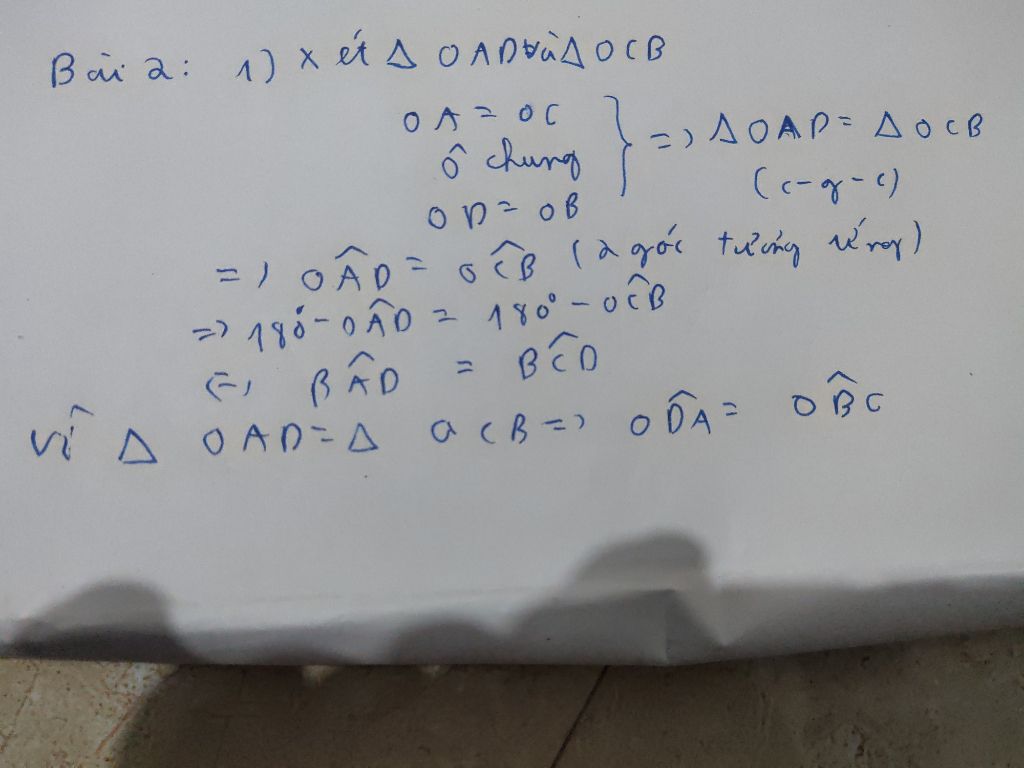 Bài 2: 1) Xét Δ OAD và Δ OCB
OA = OC
Ô chung } => Δ OAD = Δ OCB
OD = OB (c-g-c)
=> OÂD = OĈB (2 góc tương ứng)
=> 180° - OÂD = 180° - OĈB
<=> BÂD = BĈD
Vì Δ OAD = Δ OCB => OD̂A = OB̂C